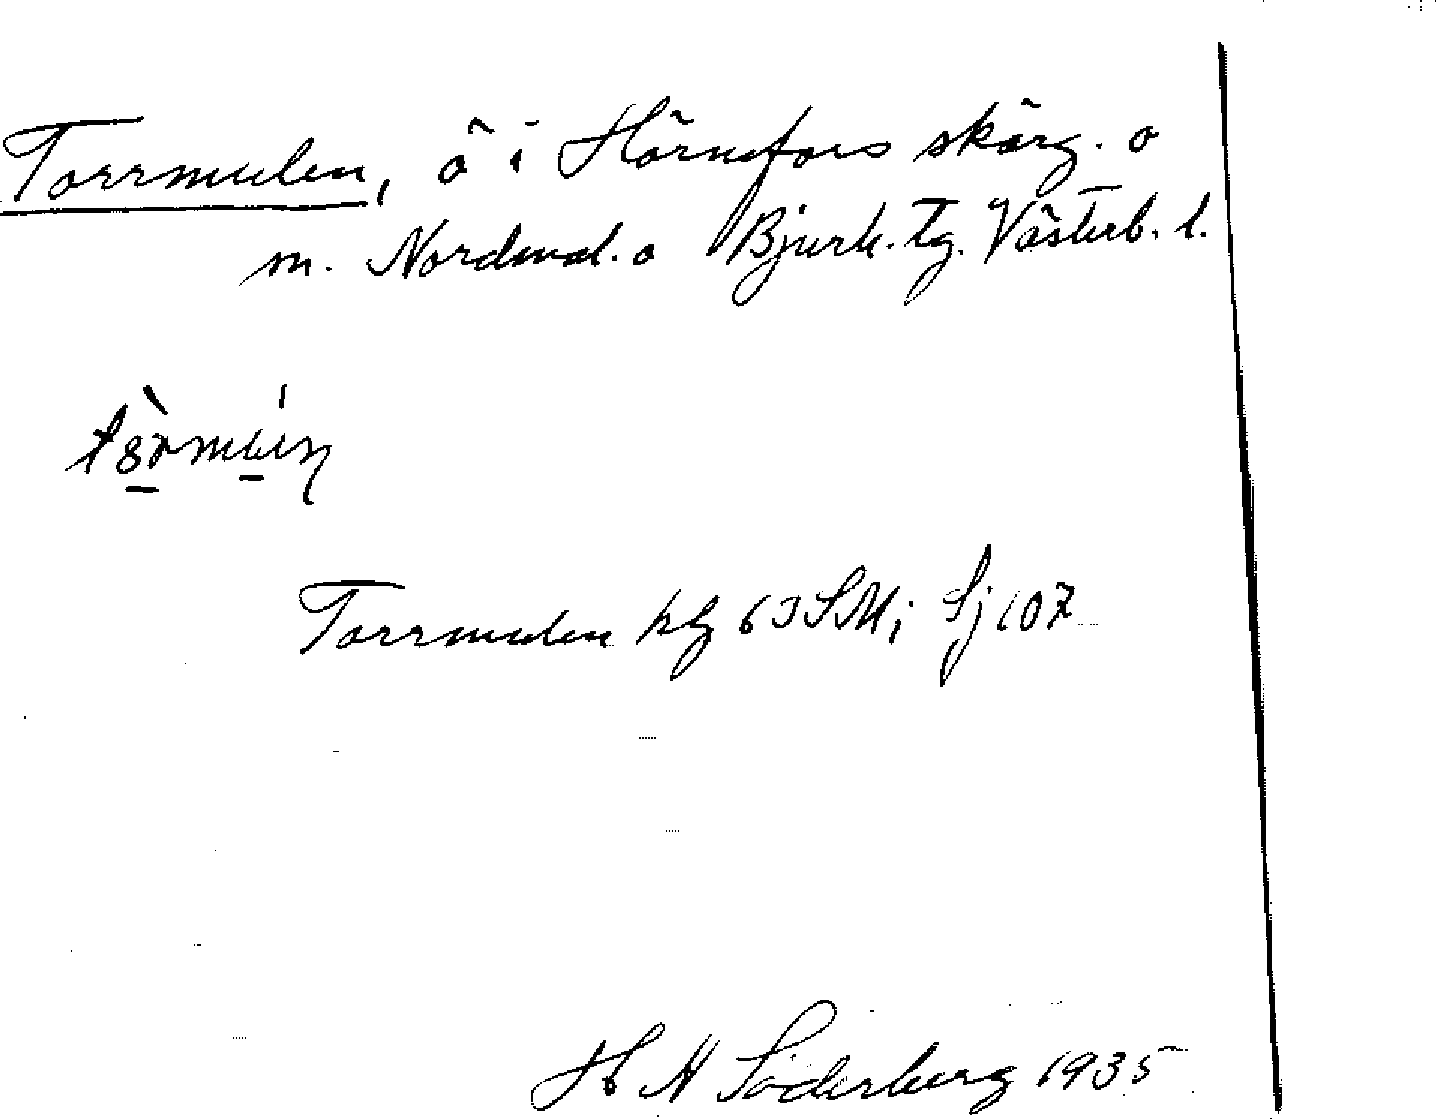 Torrmulen, ö i Hörnefors skärg. o
m. Nordmal. o Bjurh. tg. Västerb. l.
Torrmulen kbl 63 SM; Sj 107
H N Söderberg 1935